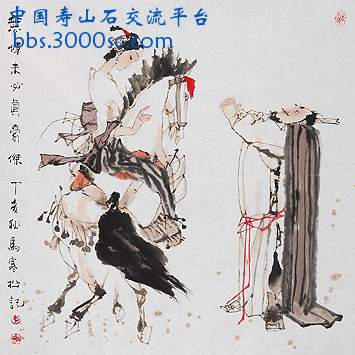 中国寿山石交流平台
bbs.3000sc.com
無情未必真豪傑 丁亥秋馬寒松記